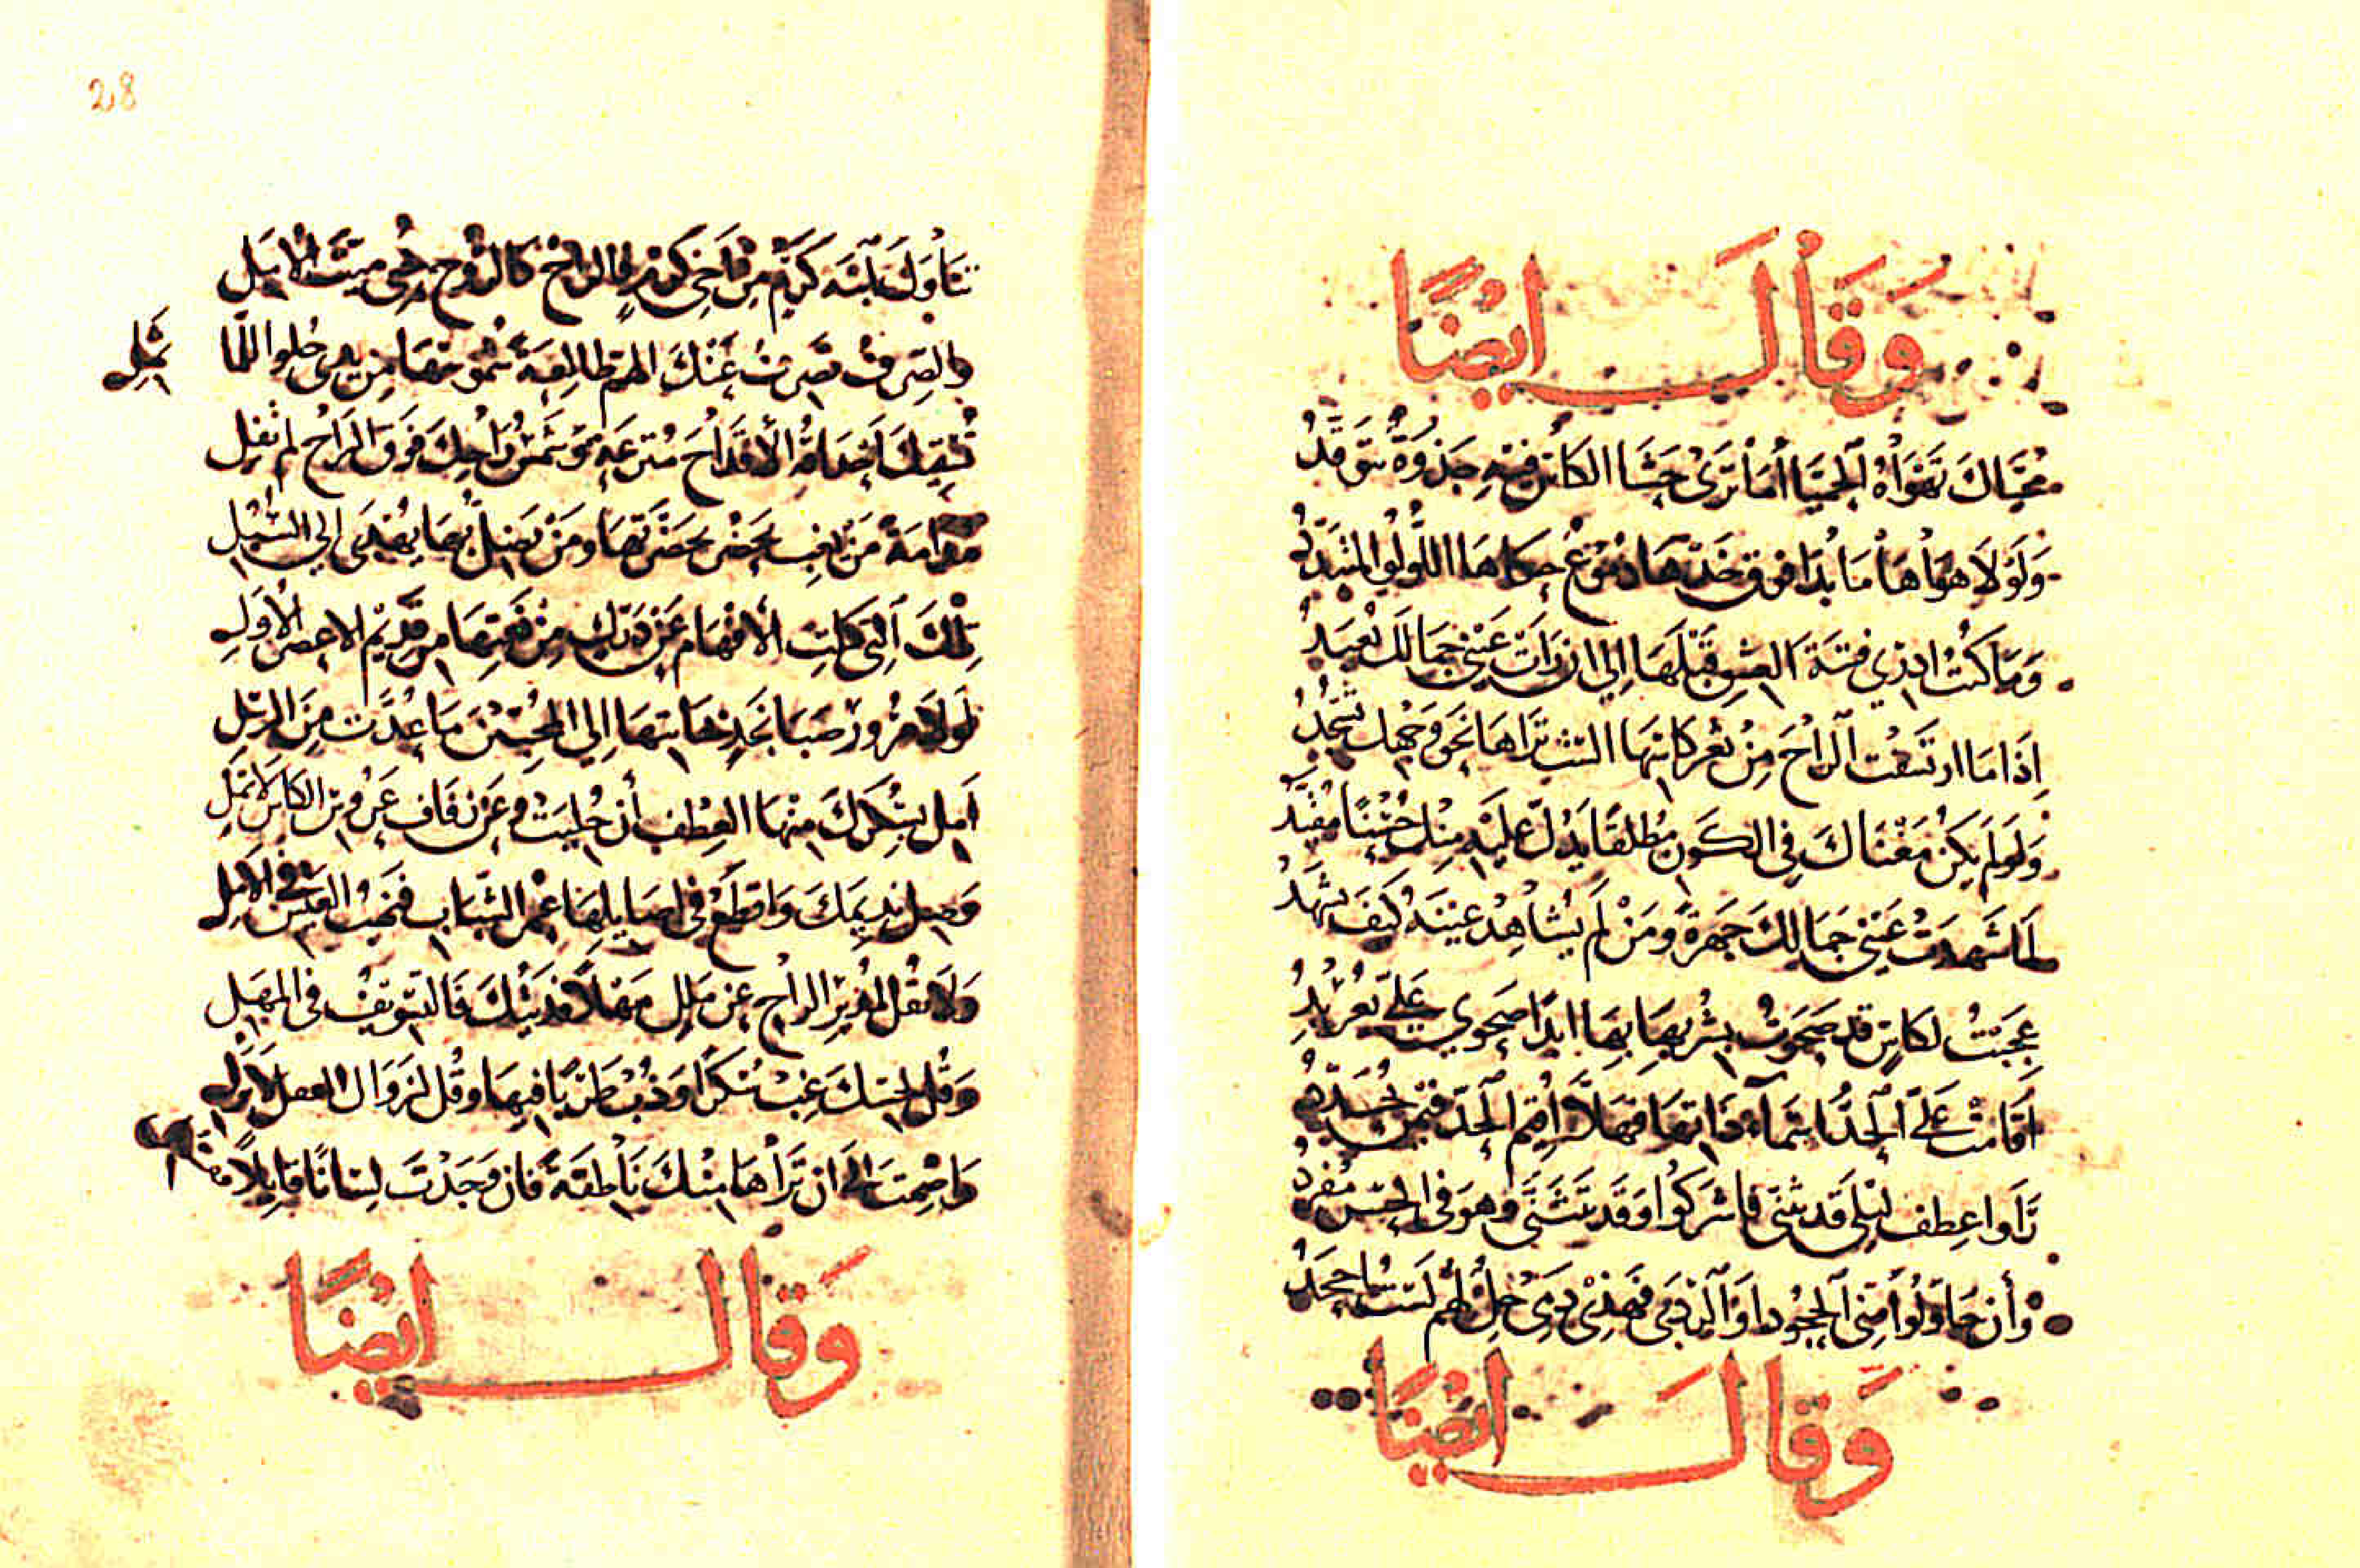 وَقَالَ أيضًا
محيّاك تهواهُ الحميّا أما ترى حشا الكاس فيه جذوةٌ تتوقّدُ
ولولا هواها ما بدا فوق خدّها دموعٌ حكاها اللؤلؤ المتبدّدُ
وما كنت ادري فتنة العشق قبلها الي ان رات عيني جمالك تعبدُ
اذا ما ارتشفت الراح من ثغر كاسها تراها نحو وجهك تسجدُ
ولو لم يكن مغناك في الكون مطلقا يدلّ عليه منك حسنًا مقيّدُ
لما شهدت عيني جمالك جهرةً ومن لم يشاهد عينهُ كيف يشهدُ
عجبتُ لكاسٍ قد صحوتُ بشربها بها ابدًا صحوي عليّ يعربدُ
اقامت عليّ الحدّ باسماء ذاتها فهلا اقيم الحدّ فيمن
راوا عطف ليلى قد تثنّى فاشركوا وقد تثنّى وهو في الحسن مفردُ
وأن حاولوا منّي الجحود او الردى فهذي دمي حلٌ لهم لست اجحدُ
وَقَالَ ايضًا
28
تناولته كريمٌ من اخي كرم فالراح كالروح يحيى ميّت الامل
والصرف تصرف عنك الهمّ طالعة شموسها من يدى حلو اللما
ثمل
تسقيك احداقه الأقداح مترعه شمس راحك فوق الراح لم تفل
مدامة من يغب يحضر بحضرتها ومن يضلّ بها يهدى الي السبل
تلك التي كلّت الأفهام عن درك من نعتها من قديم الاعصر الأول
لولا مرور صبا نجد بحانتها الي المحبين ما عُدّت من الرسل
امل بسكرك منها العطف أن جليت وعن زفاف عروس الكاس لا تمل
وصل نديمك واقطع في اصايلها عمر الشباب فخيب العيش في الامل
ولا تقل لمدير الراح عن ملل مهلا فديتك فالتسويف في المهل
وقل لحسك غب سكرًا وذب طربًا فيها وقل لزوال العقل لا تزل
واصمت الى ان تراها منك ناطقة فان وجدت لسانًا قايلًا
وَقَالَ ايضًا